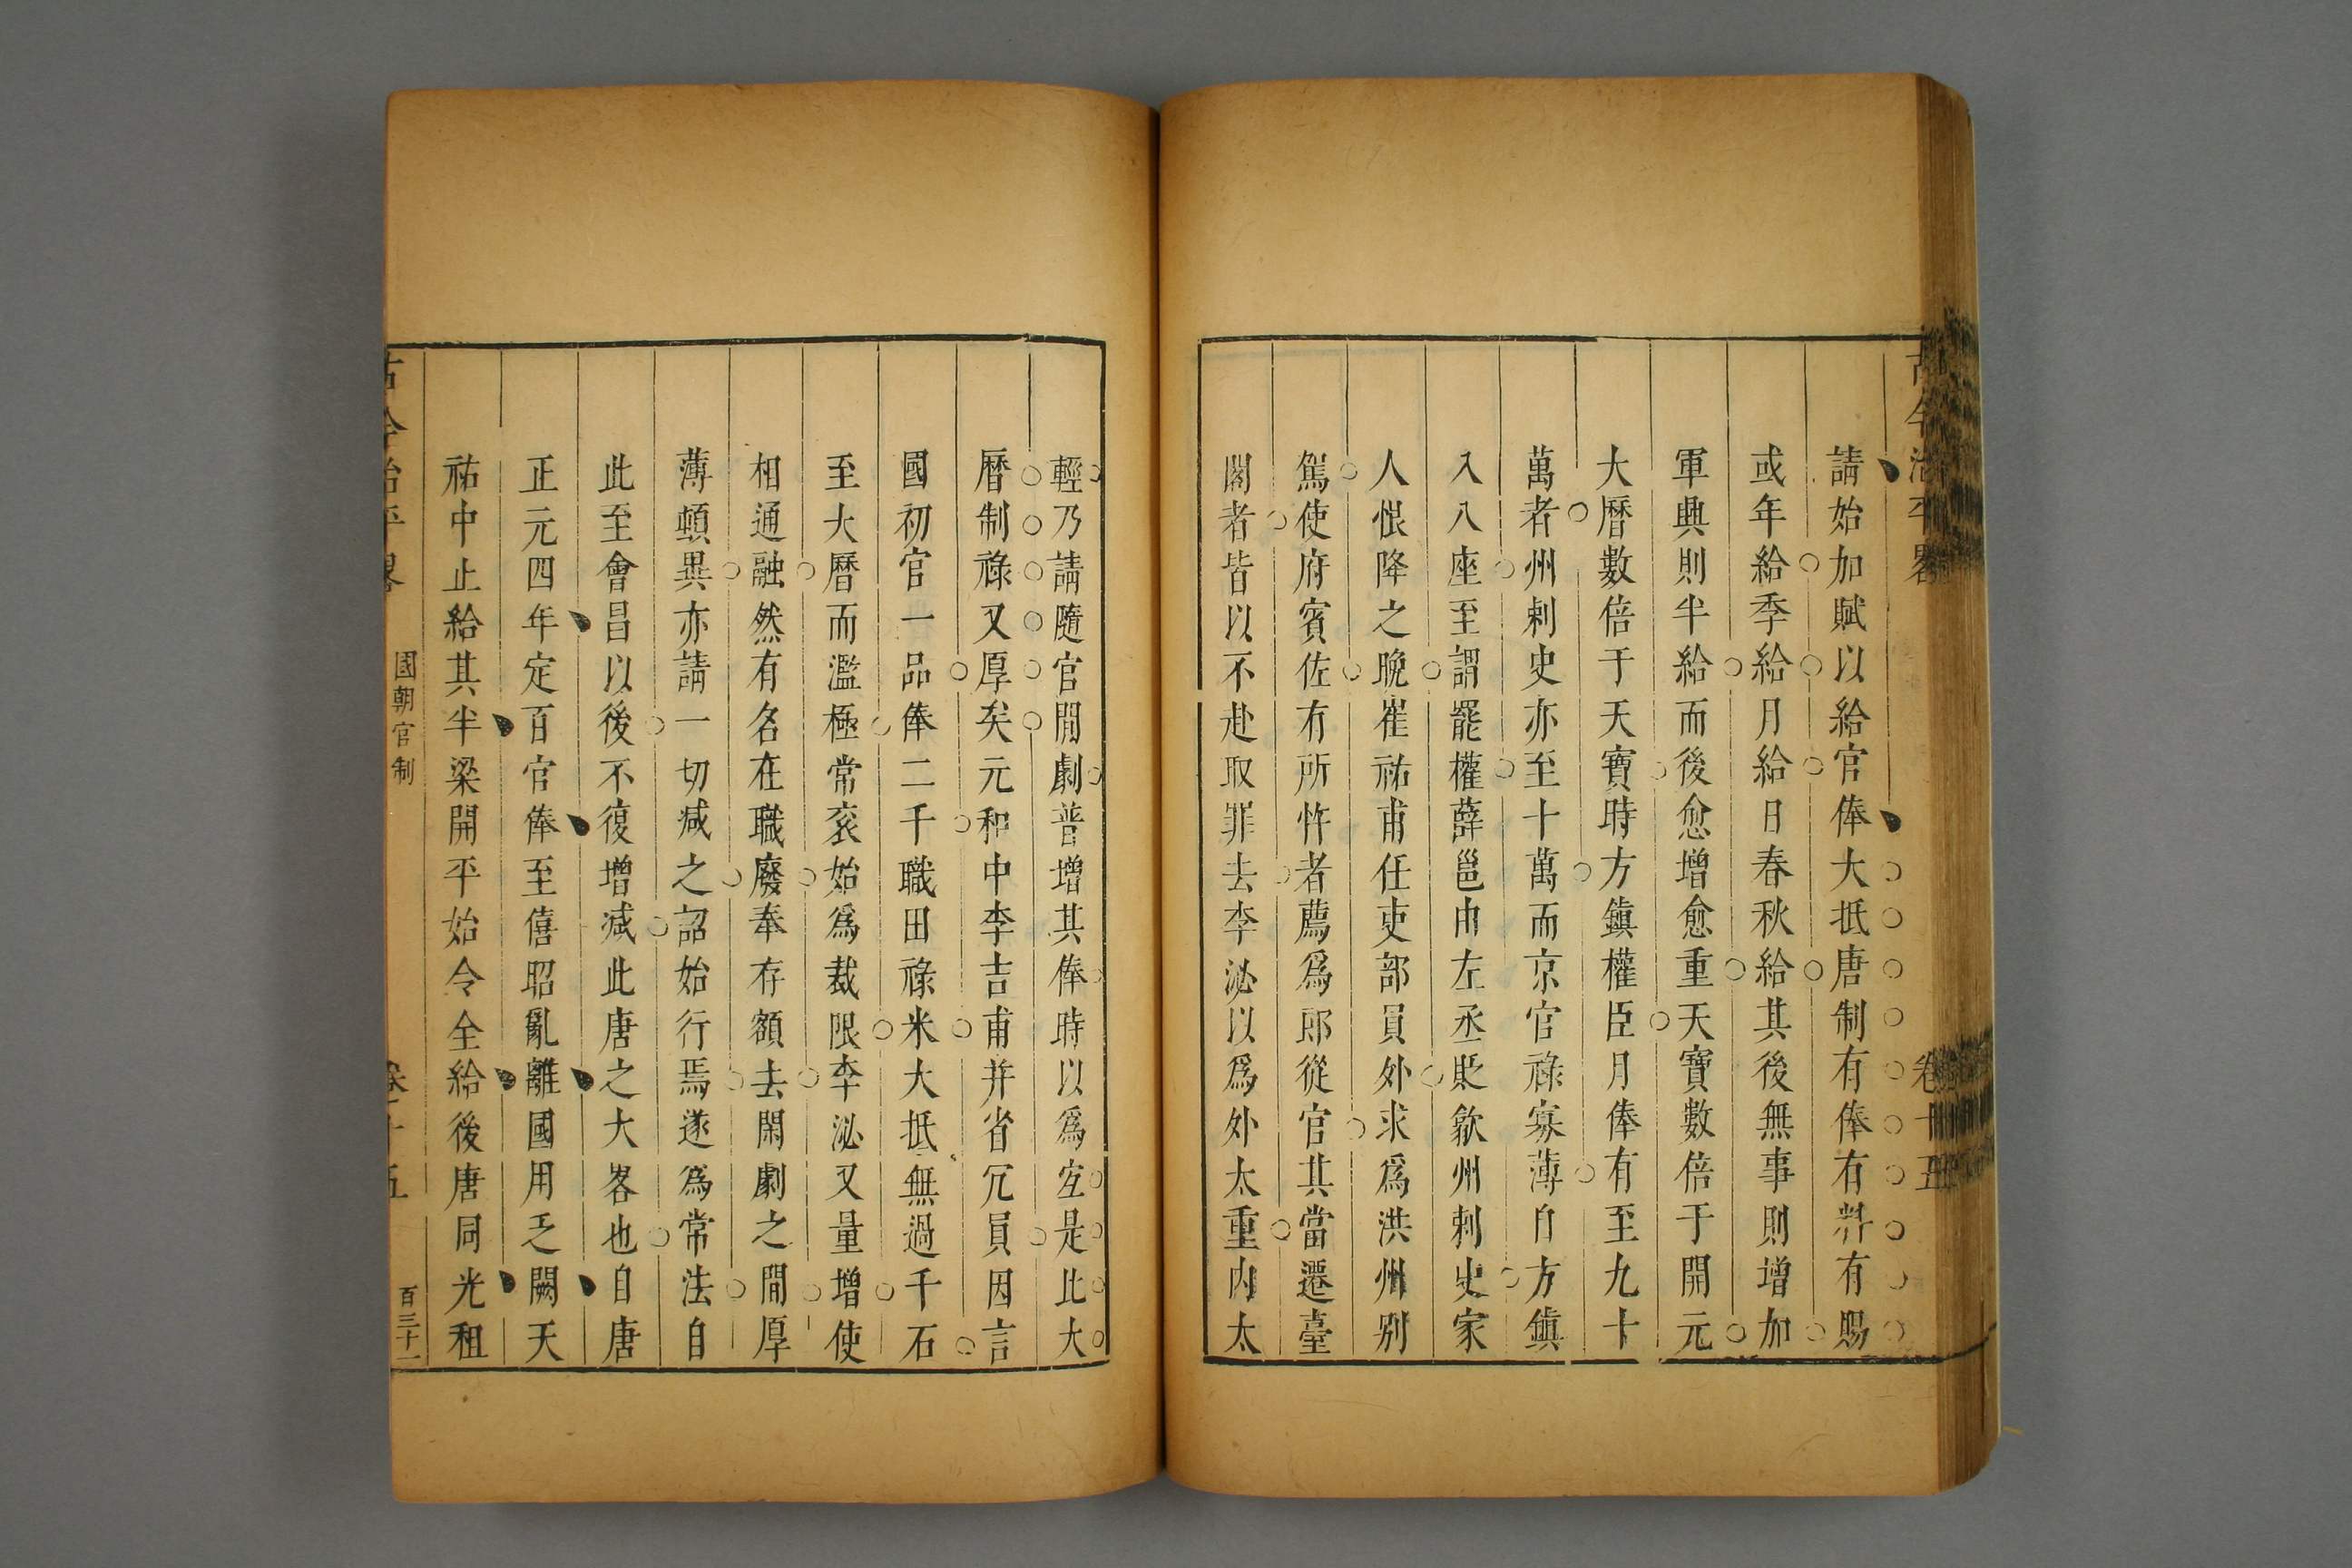 古今治平畧
卷十五
請始加賦以給官俸大抵唐制有俸有料有賜
或年給季給月給日春秋給其後無事則增加
軍興則半給而後愈增愈重天寶數倍于開元
大曆數倍于天寶時方鎮權臣月俸有至九十
萬者州剌史亦至十萬而京官祿寡薄自方鎮
入八座至謂罷權薛邕由左丞貶歙州剌史家
人恨降之晚崔祐甫任吏部員外求爲洪州別
駕使府賓佐有所忤者薦爲郎從官其當遷臺
閣者皆以不赴取罪去李泌以爲外太重内太
輕乃請隨官閒劇普增其俸時以爲宜是比大
曆制祿又厚矣元和中李吉甫并省冗員因言
國初官一品俸二千職田祿米大抵無過千石
至大曆而濫極常衮始爲裁限李泌又量增使
相通融然有名在職廢奉存額去閑劇之間厚
薄頓異亦請一切减之詔始行焉遂爲常法自
此至會昌以後不復增减此唐之大畧也自唐
正元四年定百官俸至僖昭亂離國用乏闕天
祐中止給其半梁開平始令全給後唐同光租
古今治平畧
國朝官制
卷十五
百三十一